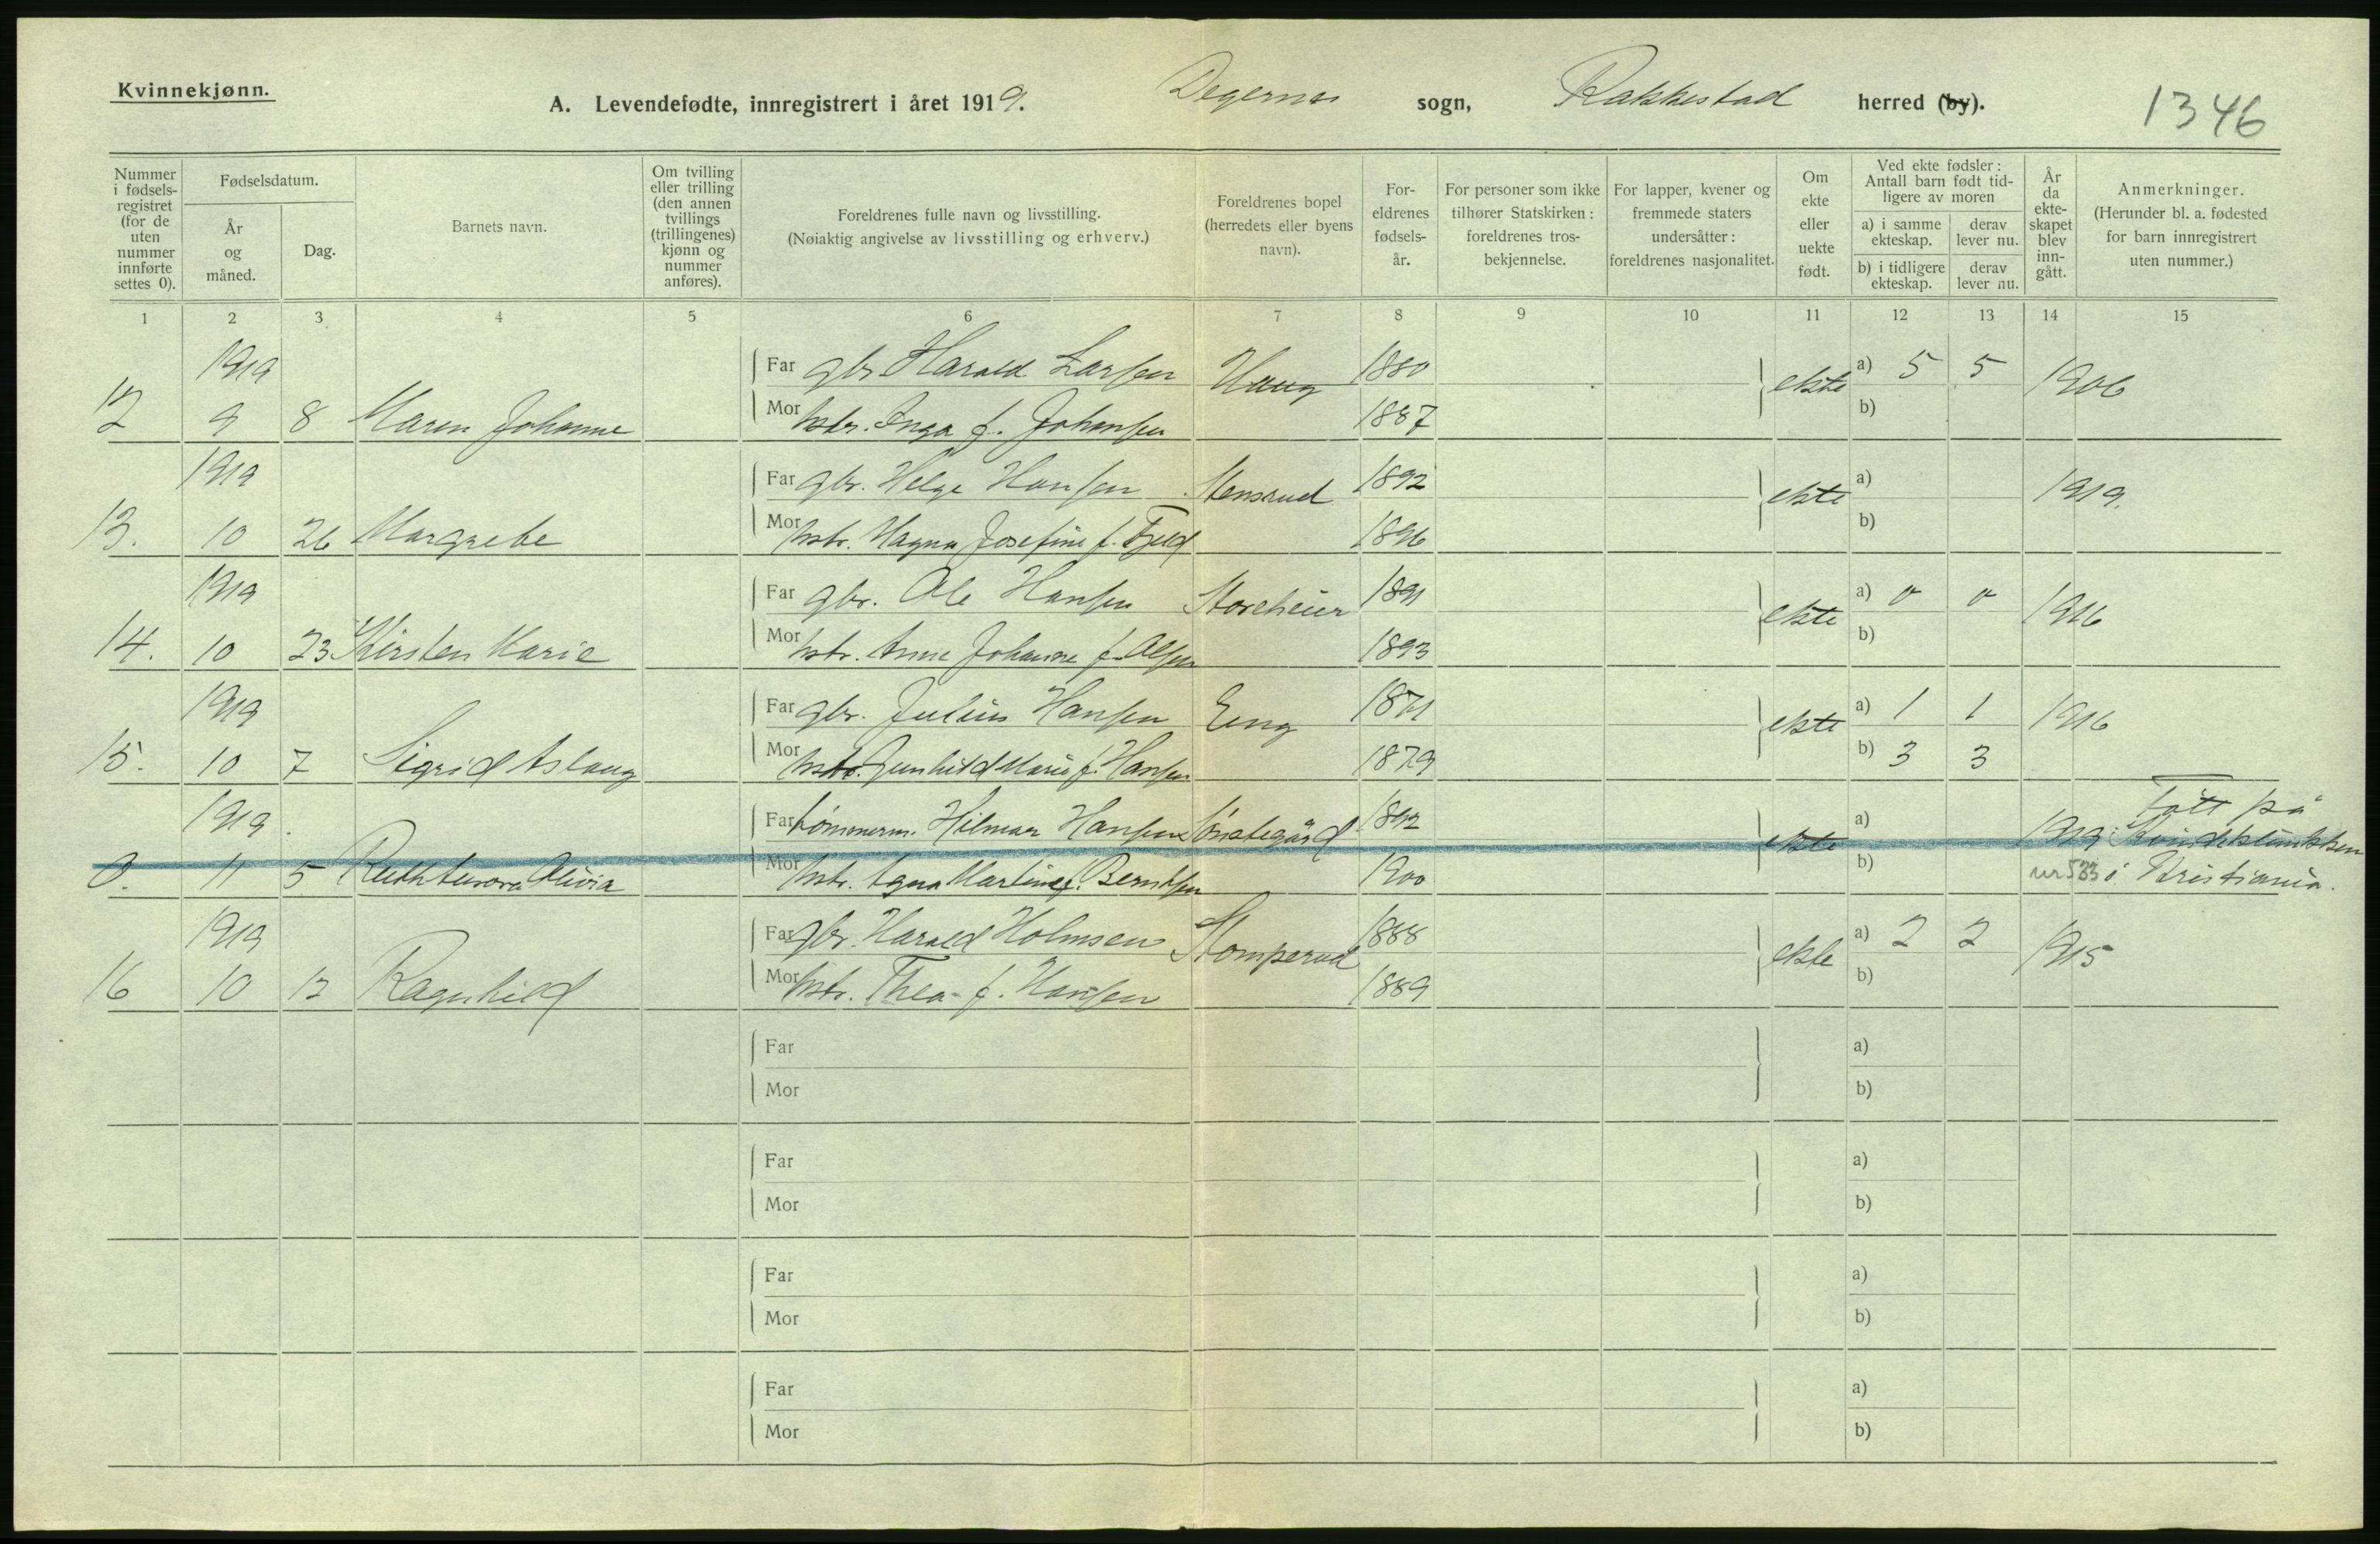 Kvinnekjønn.
A. Levendefødte, innregistrert i året 1919. Degernes sogn, Rakkestad herred (by).
1346
Nummer i fødselsregistret (for de uten nummer innførte settes 0).
Fødselsdatum.
År og måned.
Dag.
Barnets navn.
Om tvilling eller trilling (den annen tvillings (trillingenes) kjønn og nummer anføres).
Foreldrenes fulle navn og livsstilling.
(Nøiaktig angivelse av livsstilling og erhverv.)
Foreldrenes bopel (herredets eller byens navn).
Foreldrenes fødselsår.
For personer som ikke tilhører Statskirken: foreldrenes trosbekjennelse.
For lapper, kvener og fremmede staters undersåtter: foreldrenes nasjonalitet.
Om ekte eller uekte født.
Ved ekte fødsler: Antall barn født tidligere av moren
a) i samme ekteskap. derav lever nu.
b) i tidligere ekteskap. derav lever nu.
År da ekteskapet blev inngått.
Anmerkninger.
(Herunder bl. a. fødested for barn innregistrert uten nummer.)
1 2 3 4 5 6 7 8 9 10 11 12 13 14 15
1919 Far gbr Harald Larsen Haug 1880 ekte a) 5 5 1906
12 9 8 Maren Johanne Mor hstr. Inga f. Johansen 1887 b)
1919 Far gbr. Helge Hansen Stensrud 1892 ekte a) 1919.
13. 10 26 Margrete Mor hstr. Magna Josefine f. Fjeld 1896 b)
1919 Far gbr. Ole Hansen Storeheier 1891 ekte a) 0 0 1916
14. 10 23 Kirsten Marie Mor hstr. Anne Johanne f. Olsen 1893 b)
1919 Far gbr. Julius Hansen Eng 1871 ekte a) 1 1 1916
15. 10 7 Sigrid Aslaug Mor hstr. Gunhild Marie f. Hansen 1879 b) 3 3
1919. Far tømmerm. Hilmar Hansen 1892 ekte a) 1919 Født på Kvindeklinikken
0. 11 5 Ruth Aurora Olivia Mor hstr. Agna Martine f. Berntsen 1900 b) nr 533 i Kristiania.
1919 Far gbr. Harald Holmsen Stomperud 1888 ekte a) 2 2 1915
16 10 12 Ragnhild Mor hstr. Thea f. Hansen 1889 b)
Far a)
Mor b)
Far a)
Mor b)
Far a)
Mor b)
Far a)
Mor b)